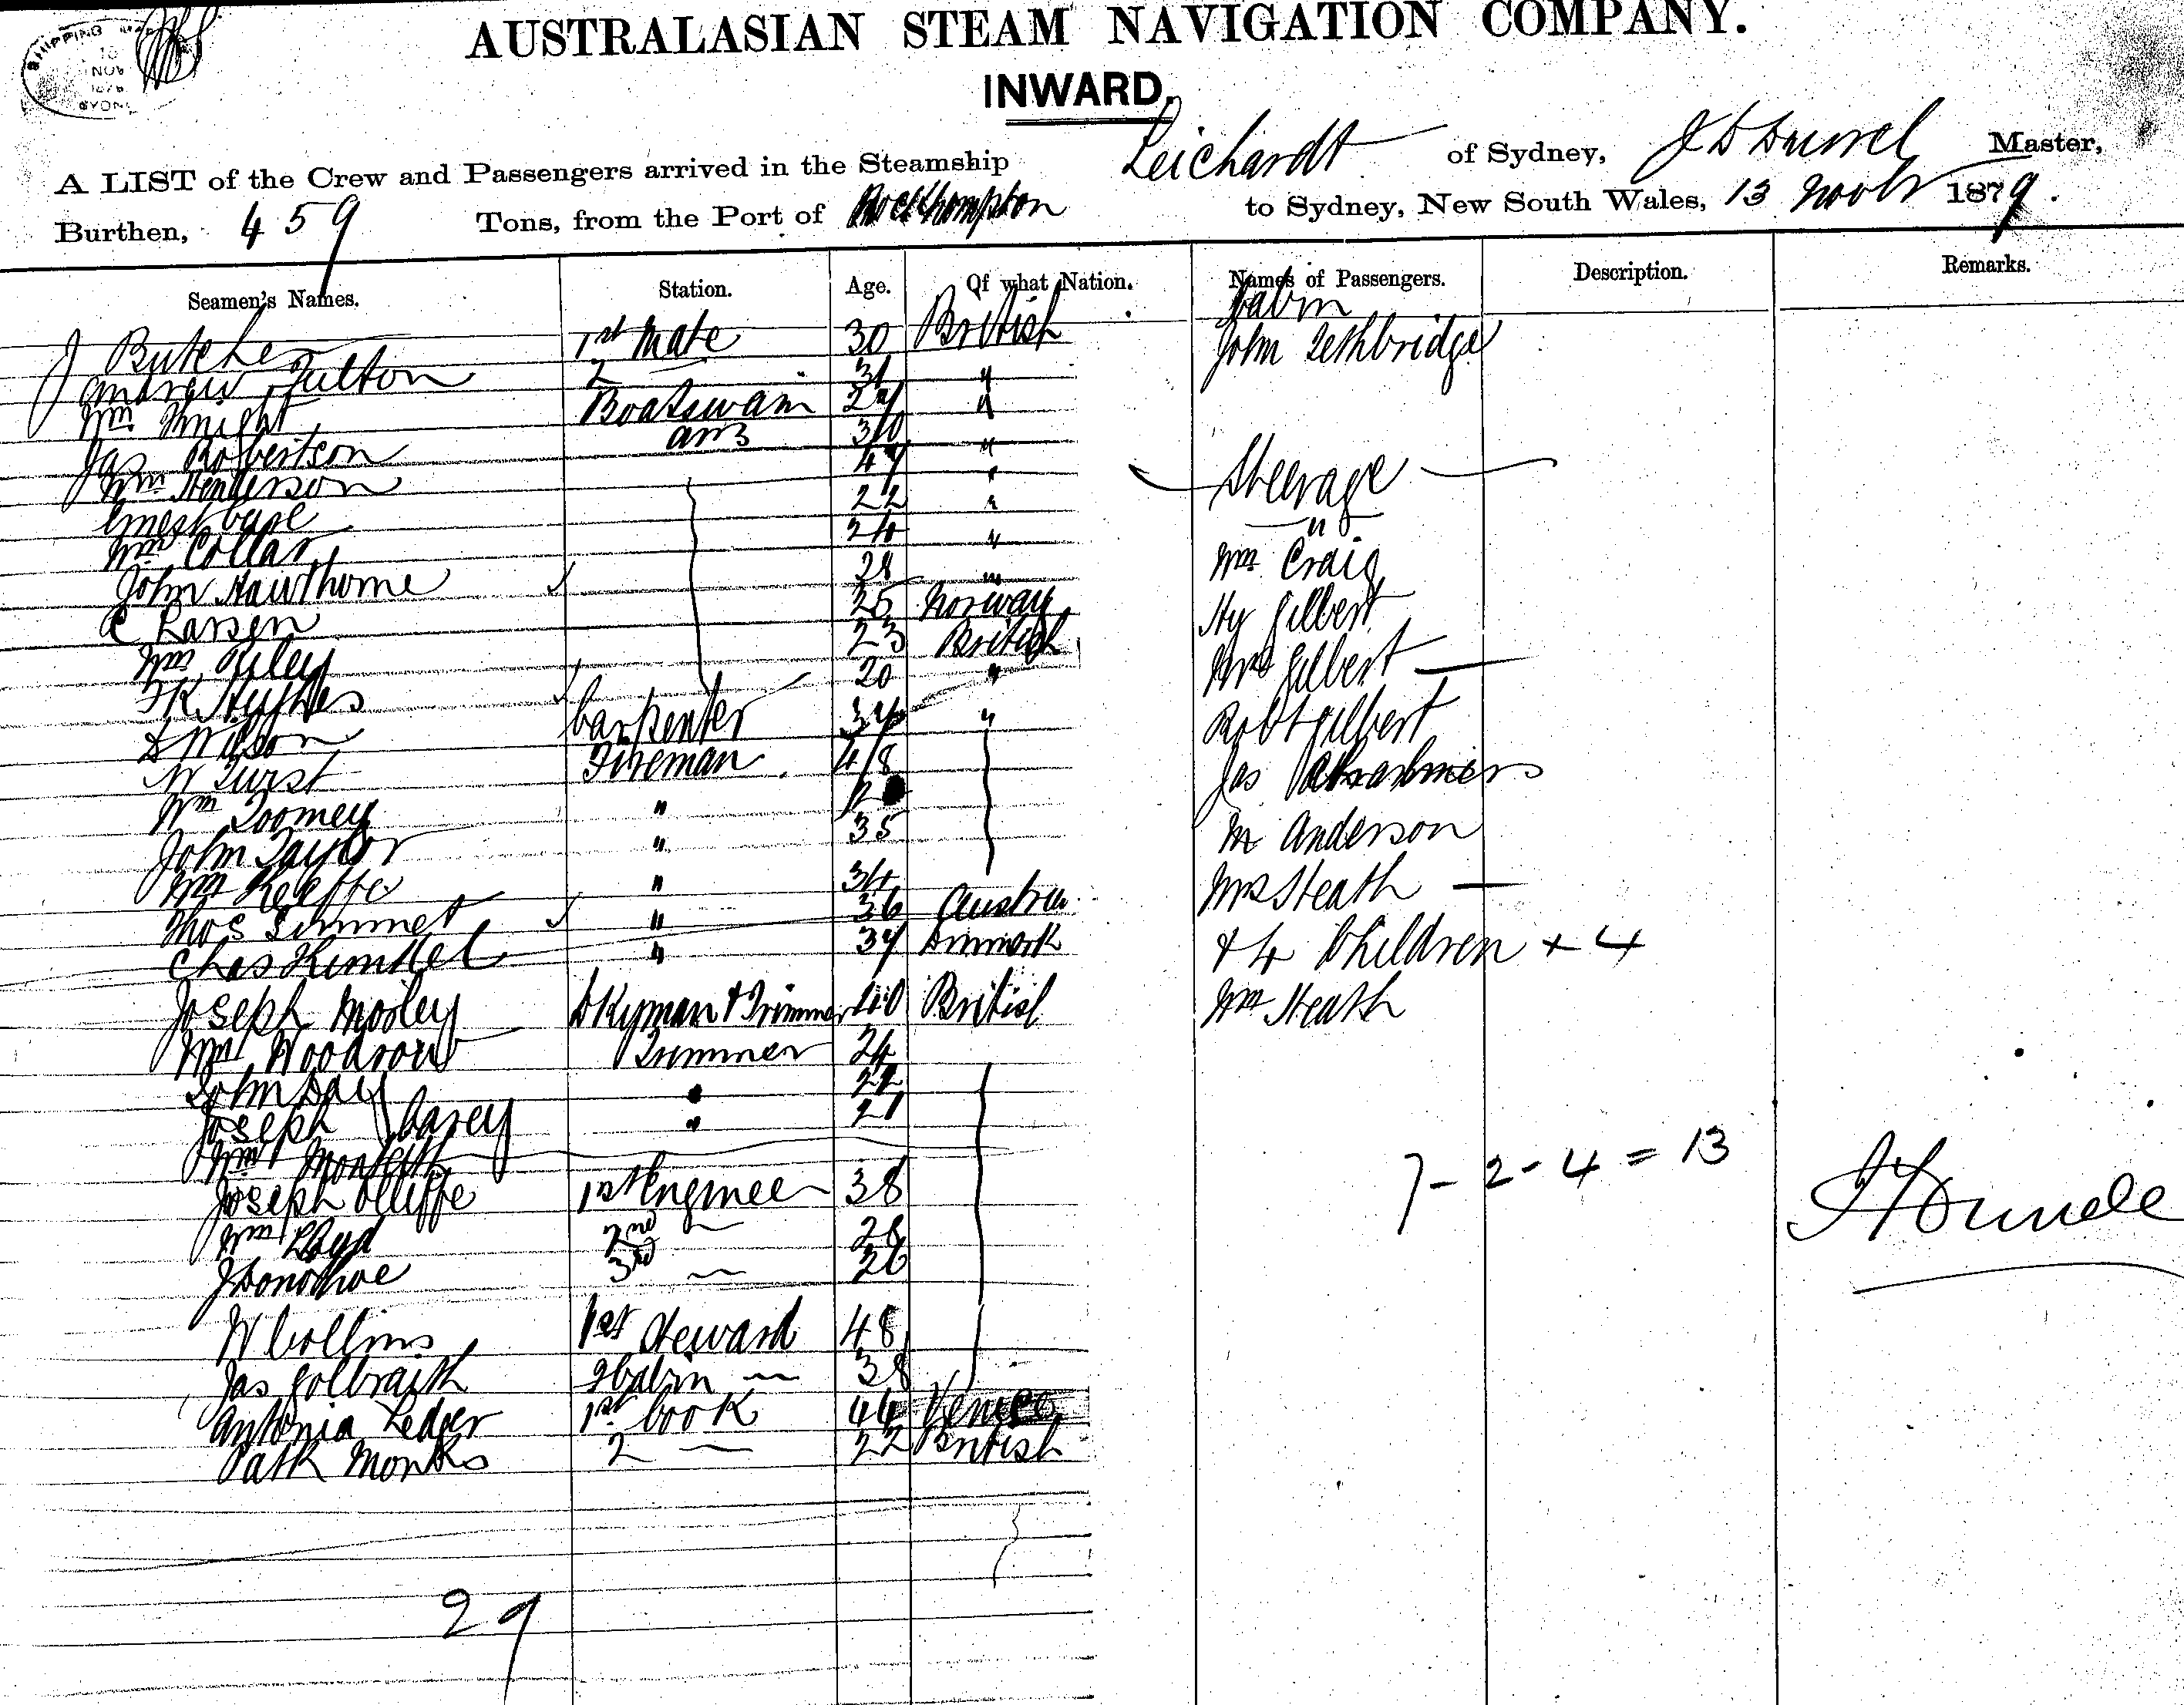 SHIPPING
NOV
SYDN
AUSTRALASIAN STEAM NAVIGATION COMPANY.
INWARD.
A LIST of the Crew and Passengers arrived in the Steamship Leichardt of Sydney, Master,
Burthen, 459 Tons, from the Port of Rockhompton to Sydney, New South Wales, 13 Novbr 1879.
Seamen's Names. Station. Age. Of what Nation. Names of Passengers. Description. Remarks.
Cabin
J Butcher 1st Mate 30 British John Lethbridge
Andrew Fulton 2 — 31 "
Wm Knight Boatswain "
Jas Robertson AB 30 "
Wm Henderson 47 " Steerage
Ernest 22 "
Wm Collar 24 " Wm Craig
John Hawthorne 28 "
C Larsen 25 Norway Hy Gilbert
Wm 23 British Mrs Gilbert —
F K Hughes 20 "
D Wilson Carpenter 34 " Robt Gilbert
W Turst Fireman 48 Jas
Wm Toomey "
John Taylor " 35 M Anderson
Wm Keeffe " 34 Mrs Heath —
Thos " 36 Austria
Chas " 37 Denmark & 4 Children + 4
Joseph Mosley Dkyman & Trimmer 40 British Wm Heath
Wm Woodrow Trimmer 24
John Day " 22
Joseph Casey " 21
Wm Monteith
7 - 2 - 4 = 13
Joseph Olliffe 1st Engineer 38
Wm Lloyd 2nd — 28
J Donohoe 3rd — 26
W Collins 1st Steward 48
Jas Golbraith 2 Cabin — 38
Antonia Ledger 1st Cook 44 Venice
Patk Monks 2 — 22 British
29